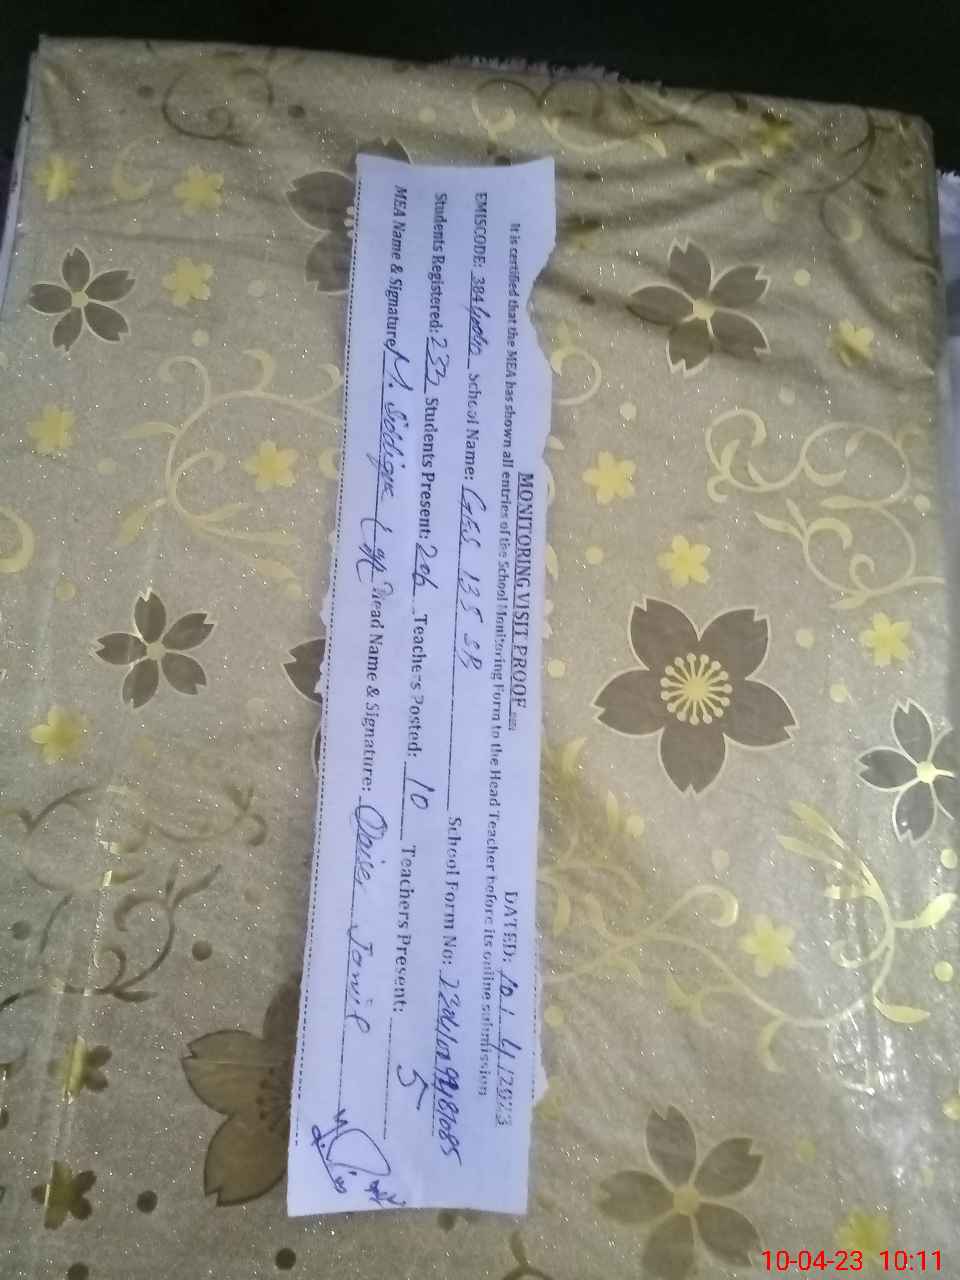 MONITORING VISIT PROOF
DATED: 10 / 4 / 2023
It is certified that the MEA has shown all entries of the School Monitoring Form to the Head Teacher before its online submission
EMISCODE: 384 School Name: 135 SB School Form No:
Students Registered: 233 Students Present: 206 Teachers Posted: 10 Teachers Present: 5
MEA Name & Signature: M. Siddique Head Name & Signature:
10-04-23 10:11